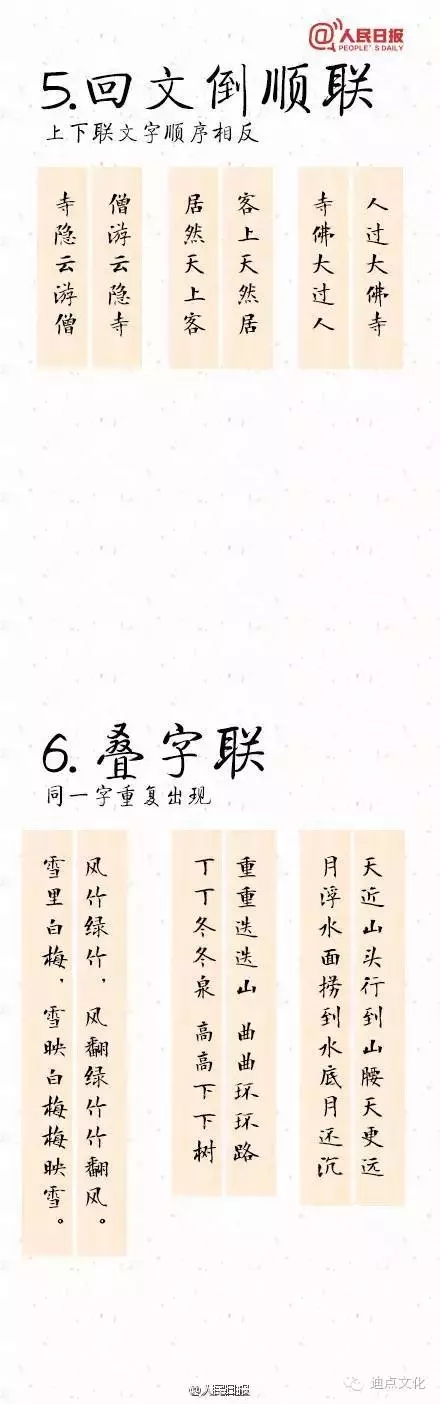 @人民日报
PEOPLE'S DAILY
5.回文倒顺联
上下联文字顺序相反
人过大佛寺
寺佛大过人
客上天然居
居然天上客
僧游云隐寺
寺隐云游僧
6.叠字联
同一字重复出现
天近山头行到山腰天更远
月浮水面捞到水底月还沉
重重迭迭山 曲曲环环路
丁丁冬冬泉 高高下下树
风竹绿竹，风翻绿竹竹翻风。
雪里白梅，雪映白梅梅映雪。
@人民日报
迪点文化